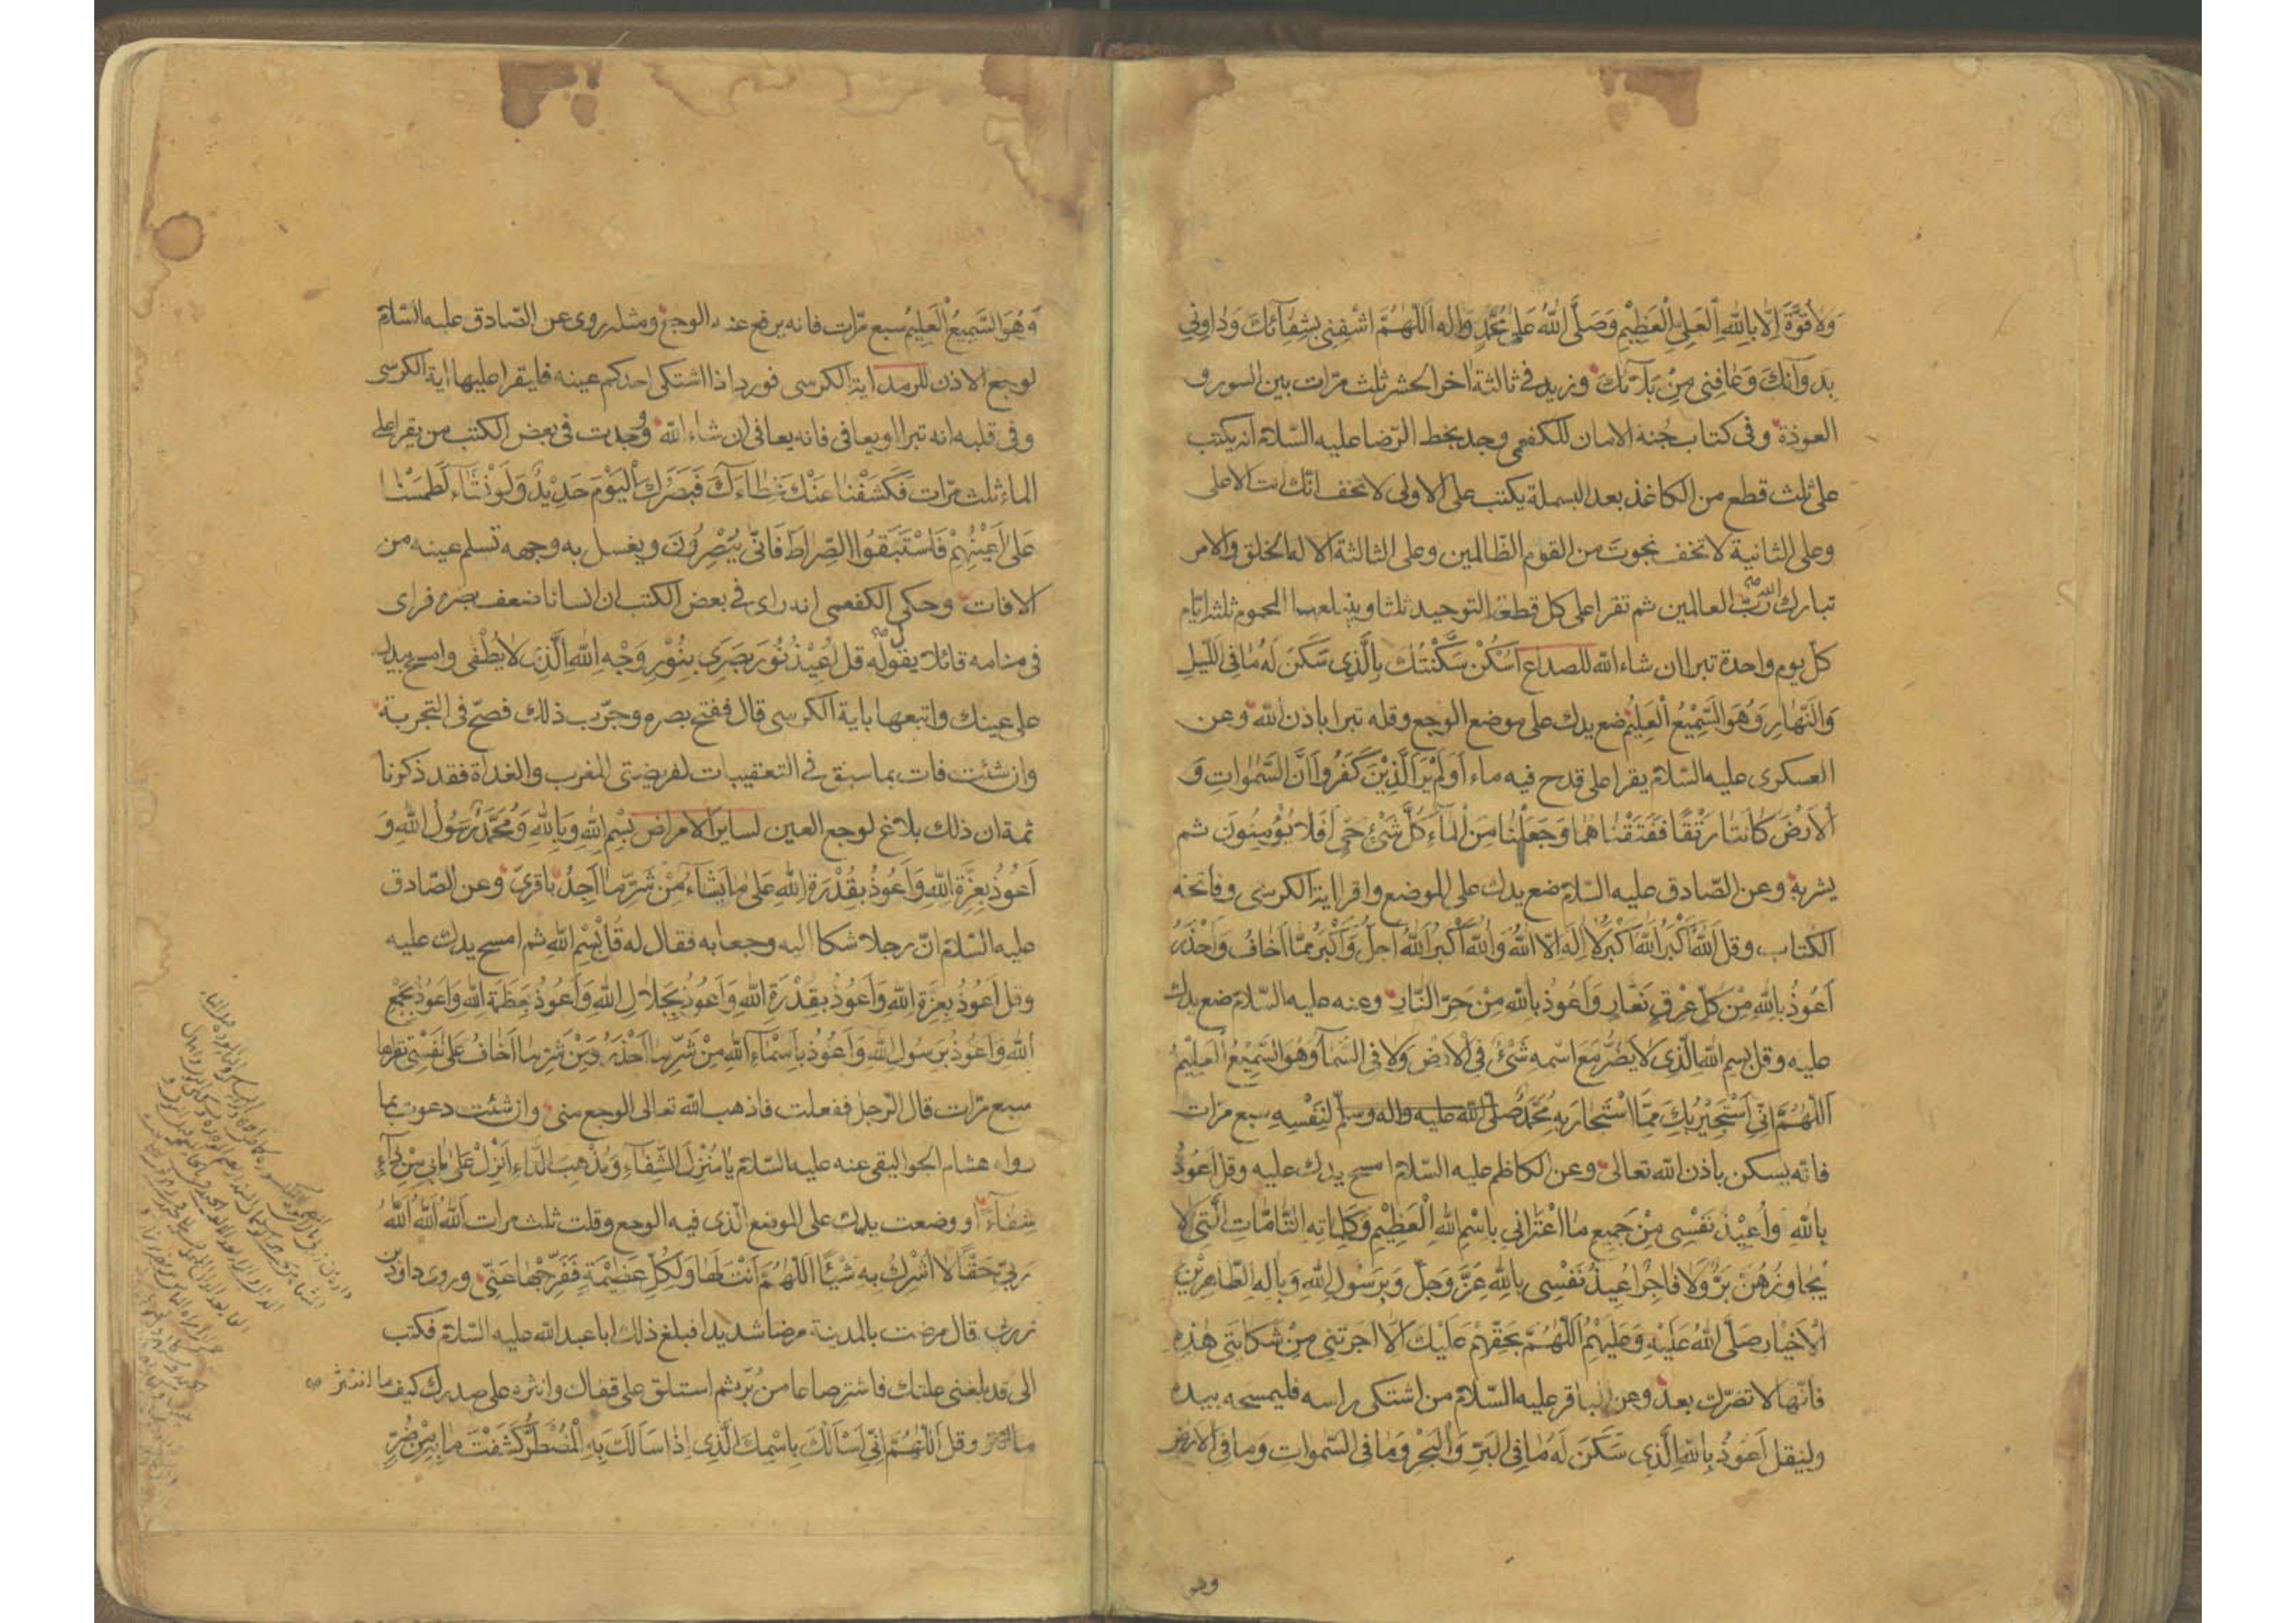 وَلَا قُوَّةَ اِلَّا بِاللّٰهِ الْعَلِيِّ الْعَظِيْمِ وَصَلَّى اللّٰهُ عَلٰى مُحَمَّدٍ وَاٰلِهِ اَللّٰهُمَّ اشْفِنِي بِشِفَآئِكَ وَدَاوِنِي
بِدَوَآئِكَ وَعَافِنِي مِنْ بَلَآئِكَ وزيد في ثالثة اخر الحشر ثلث مرّات بين السور و
العوذة وفى كتاب جُنة الامان للكفعمى وجد بخط الرّضا عليه السّلام انه يكتب
على ثلث قطع من الكاغذ بعد البسملة يكتب على الاولى لا تخف انّك انت الاعلى
وعلى الثانية لا تخف نجوتَ من القوم الظالمين وعلى الثالثة الا له الخلق والامر
تبارك اللّه ربّ العالمين ثم تقرا على كل قطعة التوحيد ثلثا ويبتلعها المحموم ثلثة ايّام
كلّ يوم واحدة تبرا ان شاء اللّه للصداع اُسْكُنْ سَكَّنْتُكَ بِالَّذِي سَكَنَ لَهُ مَا فِى اللَّيْلِ
وَالنَّهَارِ وَهُوَ السَّمِيْعُ الْعَلِيْمُ ضع يدك على موضع الوجع وقله تبرا باذن اللّه وعن
العسكرى عليه السّلام يقرا على قدح فيه ماء اَوَلَمْ يَرَ الَّذِيْنَ كَفَرُوا اَنَّ السَّمٰوَاتِ وَ
الْاَرْضَ كَانَتَا رَتْقًا فَفَتَقْنَاهُمَا وَجَعَلْنَا مِنَ الْمَآءِ كُلَّ شَيْءٍ حَيٍّ اَفَلَا يُؤْمِنُونَ ثم
يشربه وعن الصّادق عليه السّلام ضع يدك على الموضع واقرا اية الكرسى وفاتحة
الكتاب وقل اَللّٰهُ اَكْبَرُ اَللّٰهُ اَكْبَرُ لَا اِلٰهَ اِلَّا اللّٰهُ وَاللّٰهُ اَكْبَرُ اَللّٰهُ اَجَلُّ وَاَكْبَرُ مِمَّا اَخَافُ وَاَحْذَرُ
اَعُوذُ بِاللّٰهِ مِنْ كُلِّ عِرْقٍ نَعَّارٍ وَاَعُوذُ بِاللّٰهِ مِنْ حَرِّ النَّارِ وعنه عليه السّلام ضع يدك
عليه وقل بِسْمِ اللّٰهِ الَّذِي لَا يَضُرُّ مَعَ اسْمِهِ شَيْءٌ فِي الْاَرْضِ وَلَا فِي السَّمَآءِ وَهُوَ السَّمِيْعُ الْعَلِيْمُ
اَللّٰهُمَّ اِنِّي اَسْتَجِيْرُ بِكَ مِمَّا اسْتَجَارَ بِهِ مُحَمَّدٌ صلى اللّه عليه واله وسلم لِنَفْسِهِ سبع مرّات
فانّه يسكن باذن اللّه تعالى وعن الكاظم عليه السّلام امسح يدك عليه وقل اَعُوذُ
بِاللّٰهِ وَاُعِيْذُ نَفْسِي مِنْ جَمِيعِ مَا اعْتَرَانِي بِاسْمِ اللّٰهِ الْعَظِيْمِ وَكَلِمَاتِهِ التَّامَّاتِ الَّتِي لَا
يُجَاوِزُهُنَّ بَرٌّ وَلَا فَاجِرٌ اُعِيْذُ نَفْسِي بِاللّٰهِ عَزَّ وَجَلَّ وَبِرَسُوْلِ اللّٰهِ وَبِاٰلِهِ الطَّاهِرِيْنَ
الْاَخْيَارِ صَلَّى اللّٰهُ عَلَيْهِ وَعَلَيْهِمْ اَللّٰهُمَّ بِحَقِّهِمْ عَلَيْكَ اِلَّا اَجَرْتَنِي مِنْ شِكَايَتِي هٰذِهِ
فانّها لا تضرّك بعد وعن الباقر عليه السّلام من اشتكى راسه فليمسحه بيده
وليقل اَعُوذُ بِاللّٰهِ الَّذِي سَكَنَ لَهُ مَا فِى الْبَرِّ وَالْبَحْرِ وَمَا فِي السَّمٰوَاتِ وَمَا فِي الْاَرْضِ
وهو
وَهُوَ السَّمِيْعُ الْعَلِيْمُ سبع مرّات فانه يرفع عنه الوجع ومثله روى عن الصّادق عليه السّلام
لوجع الاذن للرمد اية الكرسى فورد اذا اشتكى احدكم عينه فليقرا عليها اية الكرسى
وفى قلبه انه تبرا او يعافى فانه يعافى ان شاء اللّه ووُجدت فى بعض الكتب من يقرا على
الماء ثلث مرّات فَكَشَفْنَا عَنْكَ غِطَآءَكَ فَبَصَرُكَ الْيَوْمَ حَدِيْدٌ وَلَوْ نَشَآءُ لَطَمَسْنَا
عَلٰى اَعْيُنِهِمْ فَاسْتَبَقُوا الصِّرَاطَ فَاَنّٰى يُبْصِرُونَ ويغسل به وجهه تسلم عينه من
الافات وحكى الكفعمى انه راى فى بعض الكتب ان انسانا ضعف بصره فراى
فى منامه قائلا يقول له قل اُعِيْذُ نُوْرَ بَصَرِي بِنُوْرِ وَجْهِ اللّٰهِ الَّذِي لَا يُطْفٰى وامسح بيدك
على عينك واتبعها باية الكرسى قال ففتح بصره وجرّب ذلك فصحّ فى التجربة
وان شئت فات بما سبق فى التعقيبات لفريضتى المغرب والغداة فقد ذكرنا
ثمة ان ذلك بلاغ لوجع العين لساير الامراض بِسْمِ اللّٰهِ وَبِاللّٰهِ وَمُحَمَّدٌ رَسُوْلُ اللّٰهِ وَ
اَعُوذُ بِعِزَّةِ اللّٰهِ وَاَعُوذُ بِقُدْرَةِ اللّٰهِ عَلٰى مَا يَشَآءُ مِنْ شَرِّ مَا اَجِدُ باقرىّ وعن الصّادق
عليه السّلام انّ رجلا شكا اليه وجعا به فقال له قل بِسْمِ اللّٰهِ ثم امسح يدك عليه
وقل اَعُوذُ بِعِزَّةِ اللّٰهِ وَاَعُوذُ بِقُدْرَةِ اللّٰهِ وَاَعُوذُ بِجَلَالِ اللّٰهِ وَاَعُوذُ بِعَظَمَةِ اللّٰهِ وَاَعُوذُ بِجَمْعِ
اللّٰهِ وَاَعُوذُ بِرَسُولِ اللّٰهِ وَاَعُوذُ بِاَسْمَآءِ اللّٰهِ مِنْ شَرِّ مَا اَحْذَرُ وَمِنْ شَرِّ مَا اَخَافُ عَلٰى نَفْسِي تقولها
سبع مرّات قال الرّجل ففعلت فاذهب اللّه تعالى الوجع منى وان شئت دعوت بما
رواه هشام الجواليقى عنه عليه السّلام يَا مُنْزِلَ الشِّفَآءِ وَمُذْهِبَ الدَّاءِ اَنْزِلْ عَلٰى مَا بِي مِنْ دَآءٍ
شِفَآءً او وضعت يدك على الموضع الّذى فيه الوجع وقلت ثلث مرات اَللّٰهُ اَللّٰهُ اَللّٰهُ
رَبِّي حَقًّا لَا اُشْرِكُ بِهِ شَيْئًا اَللّٰهُمَّ اَنْتَ لَهَا وَلِكُلِّ عَظِيْمَةٍ فَفَرِّجْهَا عَنِّي وروى داود بن
زربى قال مرضت بالمدينة مرضا شديدا فبلغ ذلك ابا عبد اللّه عليه السّلام فكتب
الى قد بلغنى علتك فاشتر صاعا من بُرّ ثم استلق على قفاك وانثره على صدرك كيف ما انتثر
وقل اَللّٰهُمَّ اِنِّي اَسْاَلُكَ بِاسْمِكَ الَّذِي اِذَا سَاَلَكَ بِهِ الْمُضْطَرُّ كَشَفْتَ مَا بِهِ مِنْ ضُرٍّ